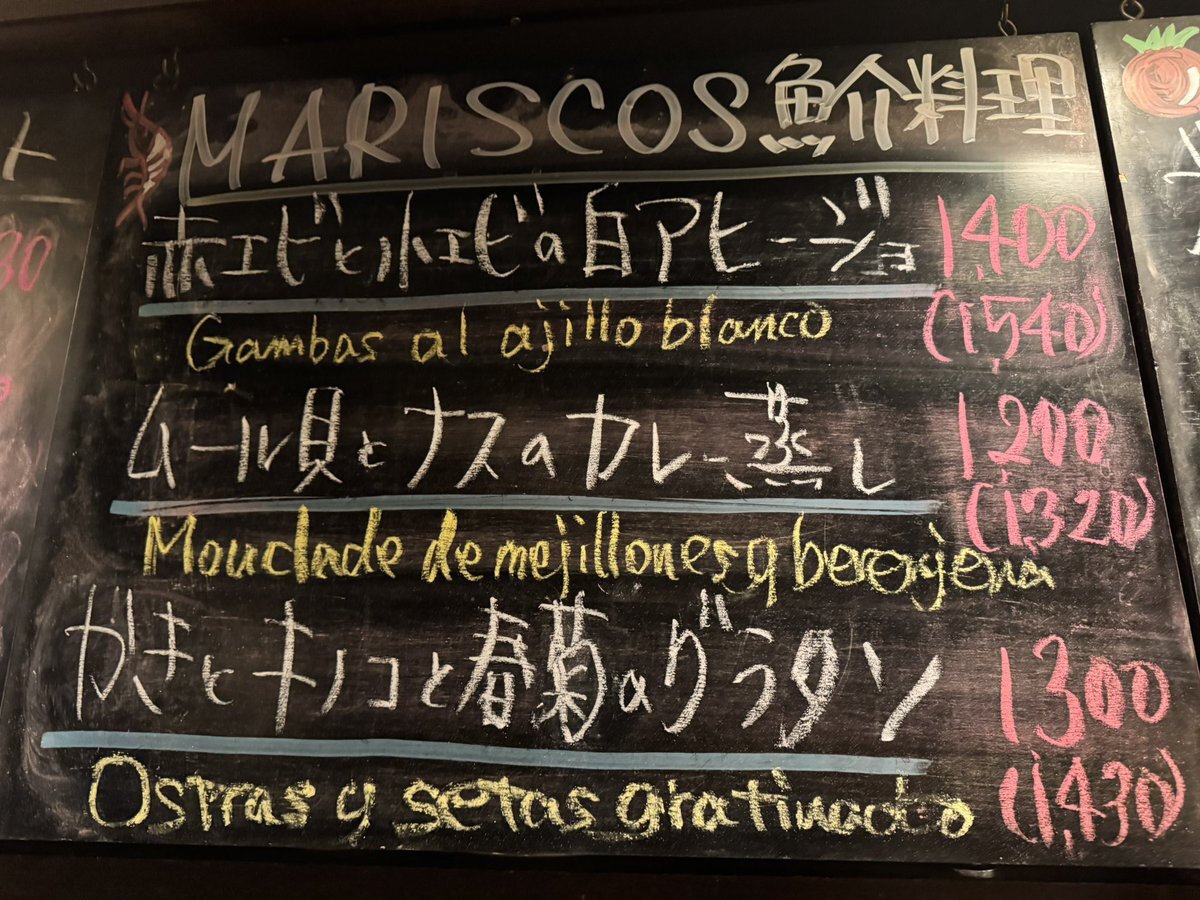 MARISCOS 魚介料理
赤エビと小エビの白アヒージョ 1,400
(1,540)
Gambas al ajillo blanco
ムール貝とナスのカレー蒸し 1200
(1,320)
Mouclade de mejillones y berenjena
かきとキノコと春菊のグラタン 1300
(1,430)
Ostras y setas gratinado